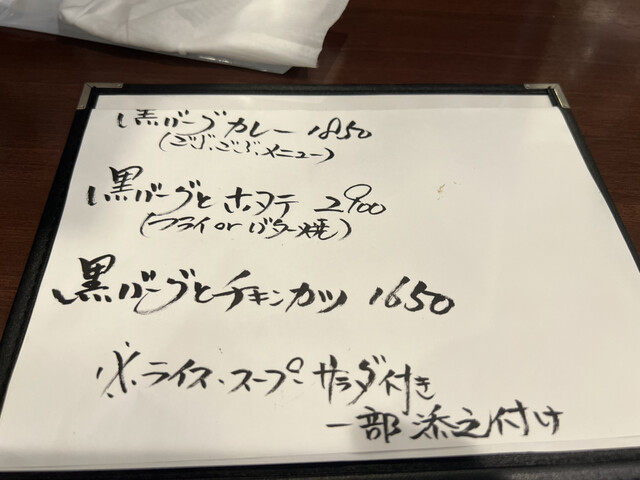 黒バーグカレー 1850
(ごぶごぶメニュー)
黒バーグとホタテ 2900
(フライorバター焼)
黒バーグとチキンカツ 1650
※ライス・スープ・サラダ付き
一部添え付け